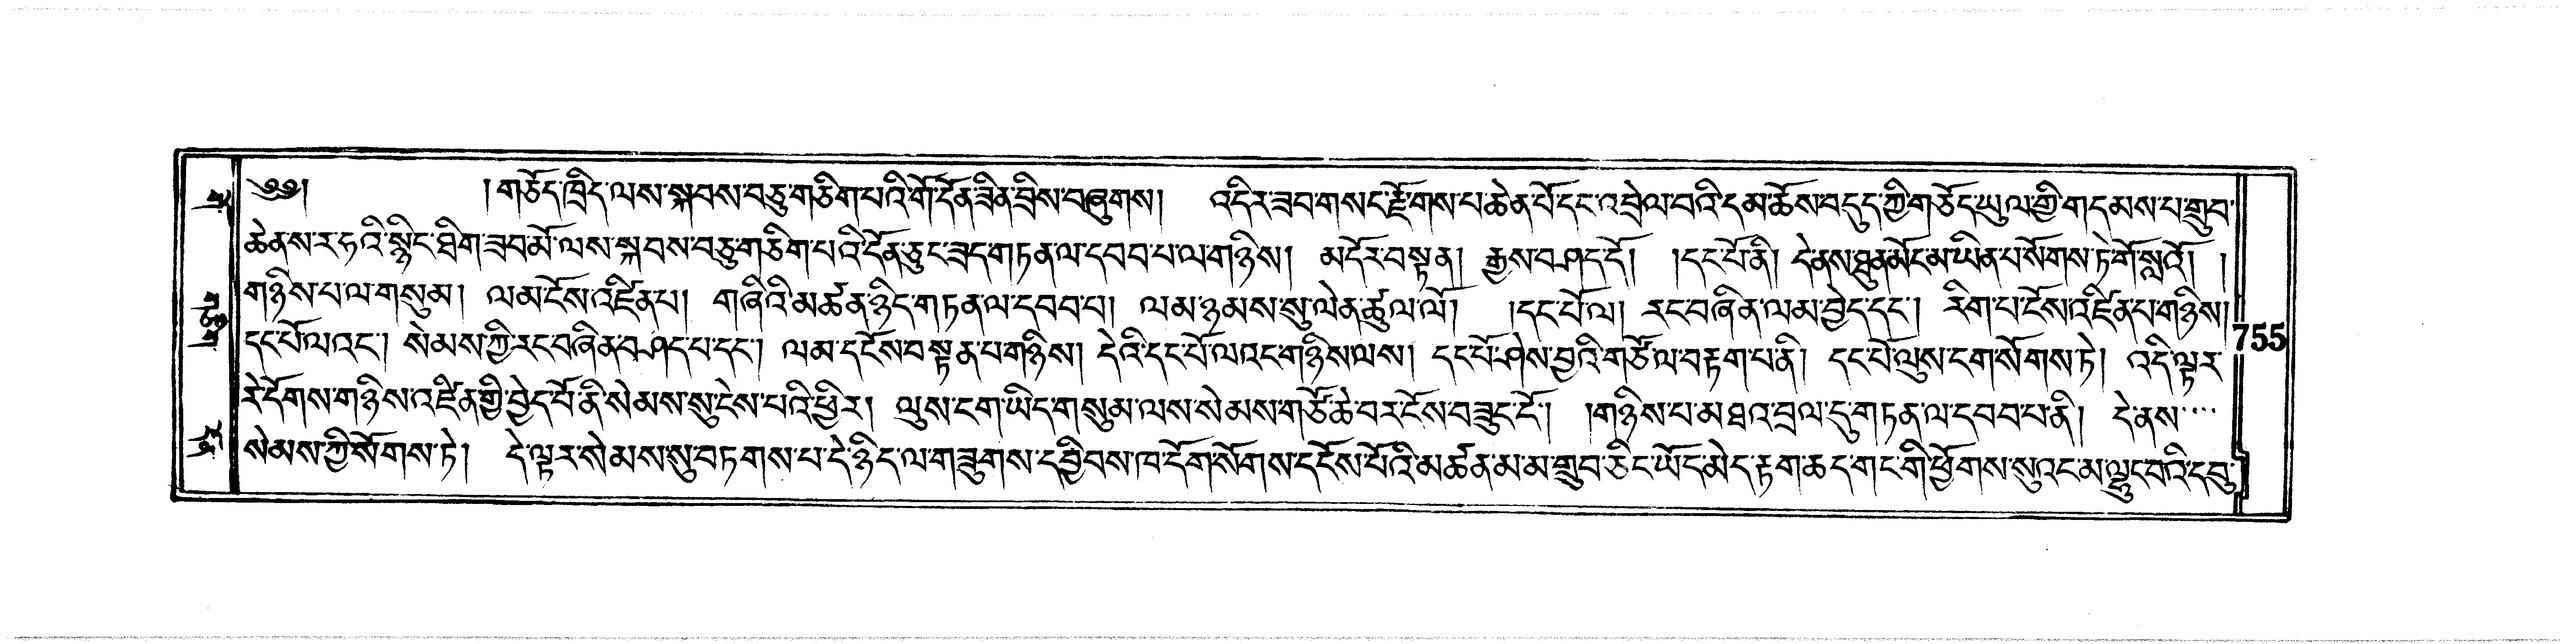 ༄༅། །གཅོད་ཁྲིད་ལས་སྐབས་བཅུ་གཅིག་པའི་གོ་དོན་ཟིན་བྲིས་བཞུགས། འདིར་ཟབ་གསང་རྫོགས་པ་ཆེན་པོ་དང་འབྲེལ་བའི་དམ་ཆོས་བདུད་ཀྱི་གཅོད་ཡུལ་གྱི་གདམས་པ་གྲུབ་
ཆེན་ས་ར་ཧའི་སྙིང་ཐིག་ཟབ་མོ་ལས་སྐབས་བཅུ་གཅིག་པའི་དོན་ཅུང་ཟད་གཏན་ལ་དབབ་པ་ལ་གཉིས། མདོར་བསྟན། རྒྱས་བཤད་དོ། །དང་པོ་ནི། དེ་ནས་ཐུན་མོང་མ་ཡིན་པ་སོགས་ཏེ་གོ་སླའོ། །
གཉིས་པ་ལ་གསུམ། ལམ་ངོས་འཛིན་པ། གཞིའི་མཚན་ཉིད་གཏན་ལ་དབབ་པ། ལམ་ཉམས་སུ་ལེན་ཚུལ་ལོ། །དང་པོ་ལ། རང་བཞིན་ལམ་བྱེད་དང་། རིག་པ་ངོས་འཛིན་པ་གཉིས།
དང་པོ་ལའང་། སེམས་ཀྱི་རང་བཞིན་བཤད་པ་དང་། ལམ་དངོས་བསྟན་པ་གཉིས། དེའི་དང་པོ་ལའང་གཉིས་ལས། དང་པོ་ཤེས་བྱའི་གཙོ་ལ་བརྟག་པ་ནི། དང་པོ་ལུས་ངག་སོགས་ཏེ། འདི་ལྟར་
རེ་དོགས་གཉིས་འཛིན་གྱི་བྱེད་པོ་ནི་སེམས་སུ་ངེས་པའི་ཕྱིར། ལུས་ངག་ཡིད་གསུམ་ལས་སེམས་གཙོ་ཆེ་བར་ངོས་བཟུང་ངོ་། །གཉིས་པ་མཐའ་བྲལ་དུ་གཏན་ལ་དབབ་པ་ནི། དེ་ནས་····
སེམས་ཀྱི་སོགས་ཏེ། དེ་ལྟར་སེམས་སུ་བཏགས་པ་དེ་ཉིད་ལ་གཟུགས་དབྱིབས་ཁ་དོག་སོགས་དངོས་པོའི་མཚན་མ་མ་གྲུབ་ཅིང་ཡོད་མེད་རྟག་ཆད་གང་གི་ཕྱོགས་སུའང་མ་ལྷུང་བའི་དབུ་
755